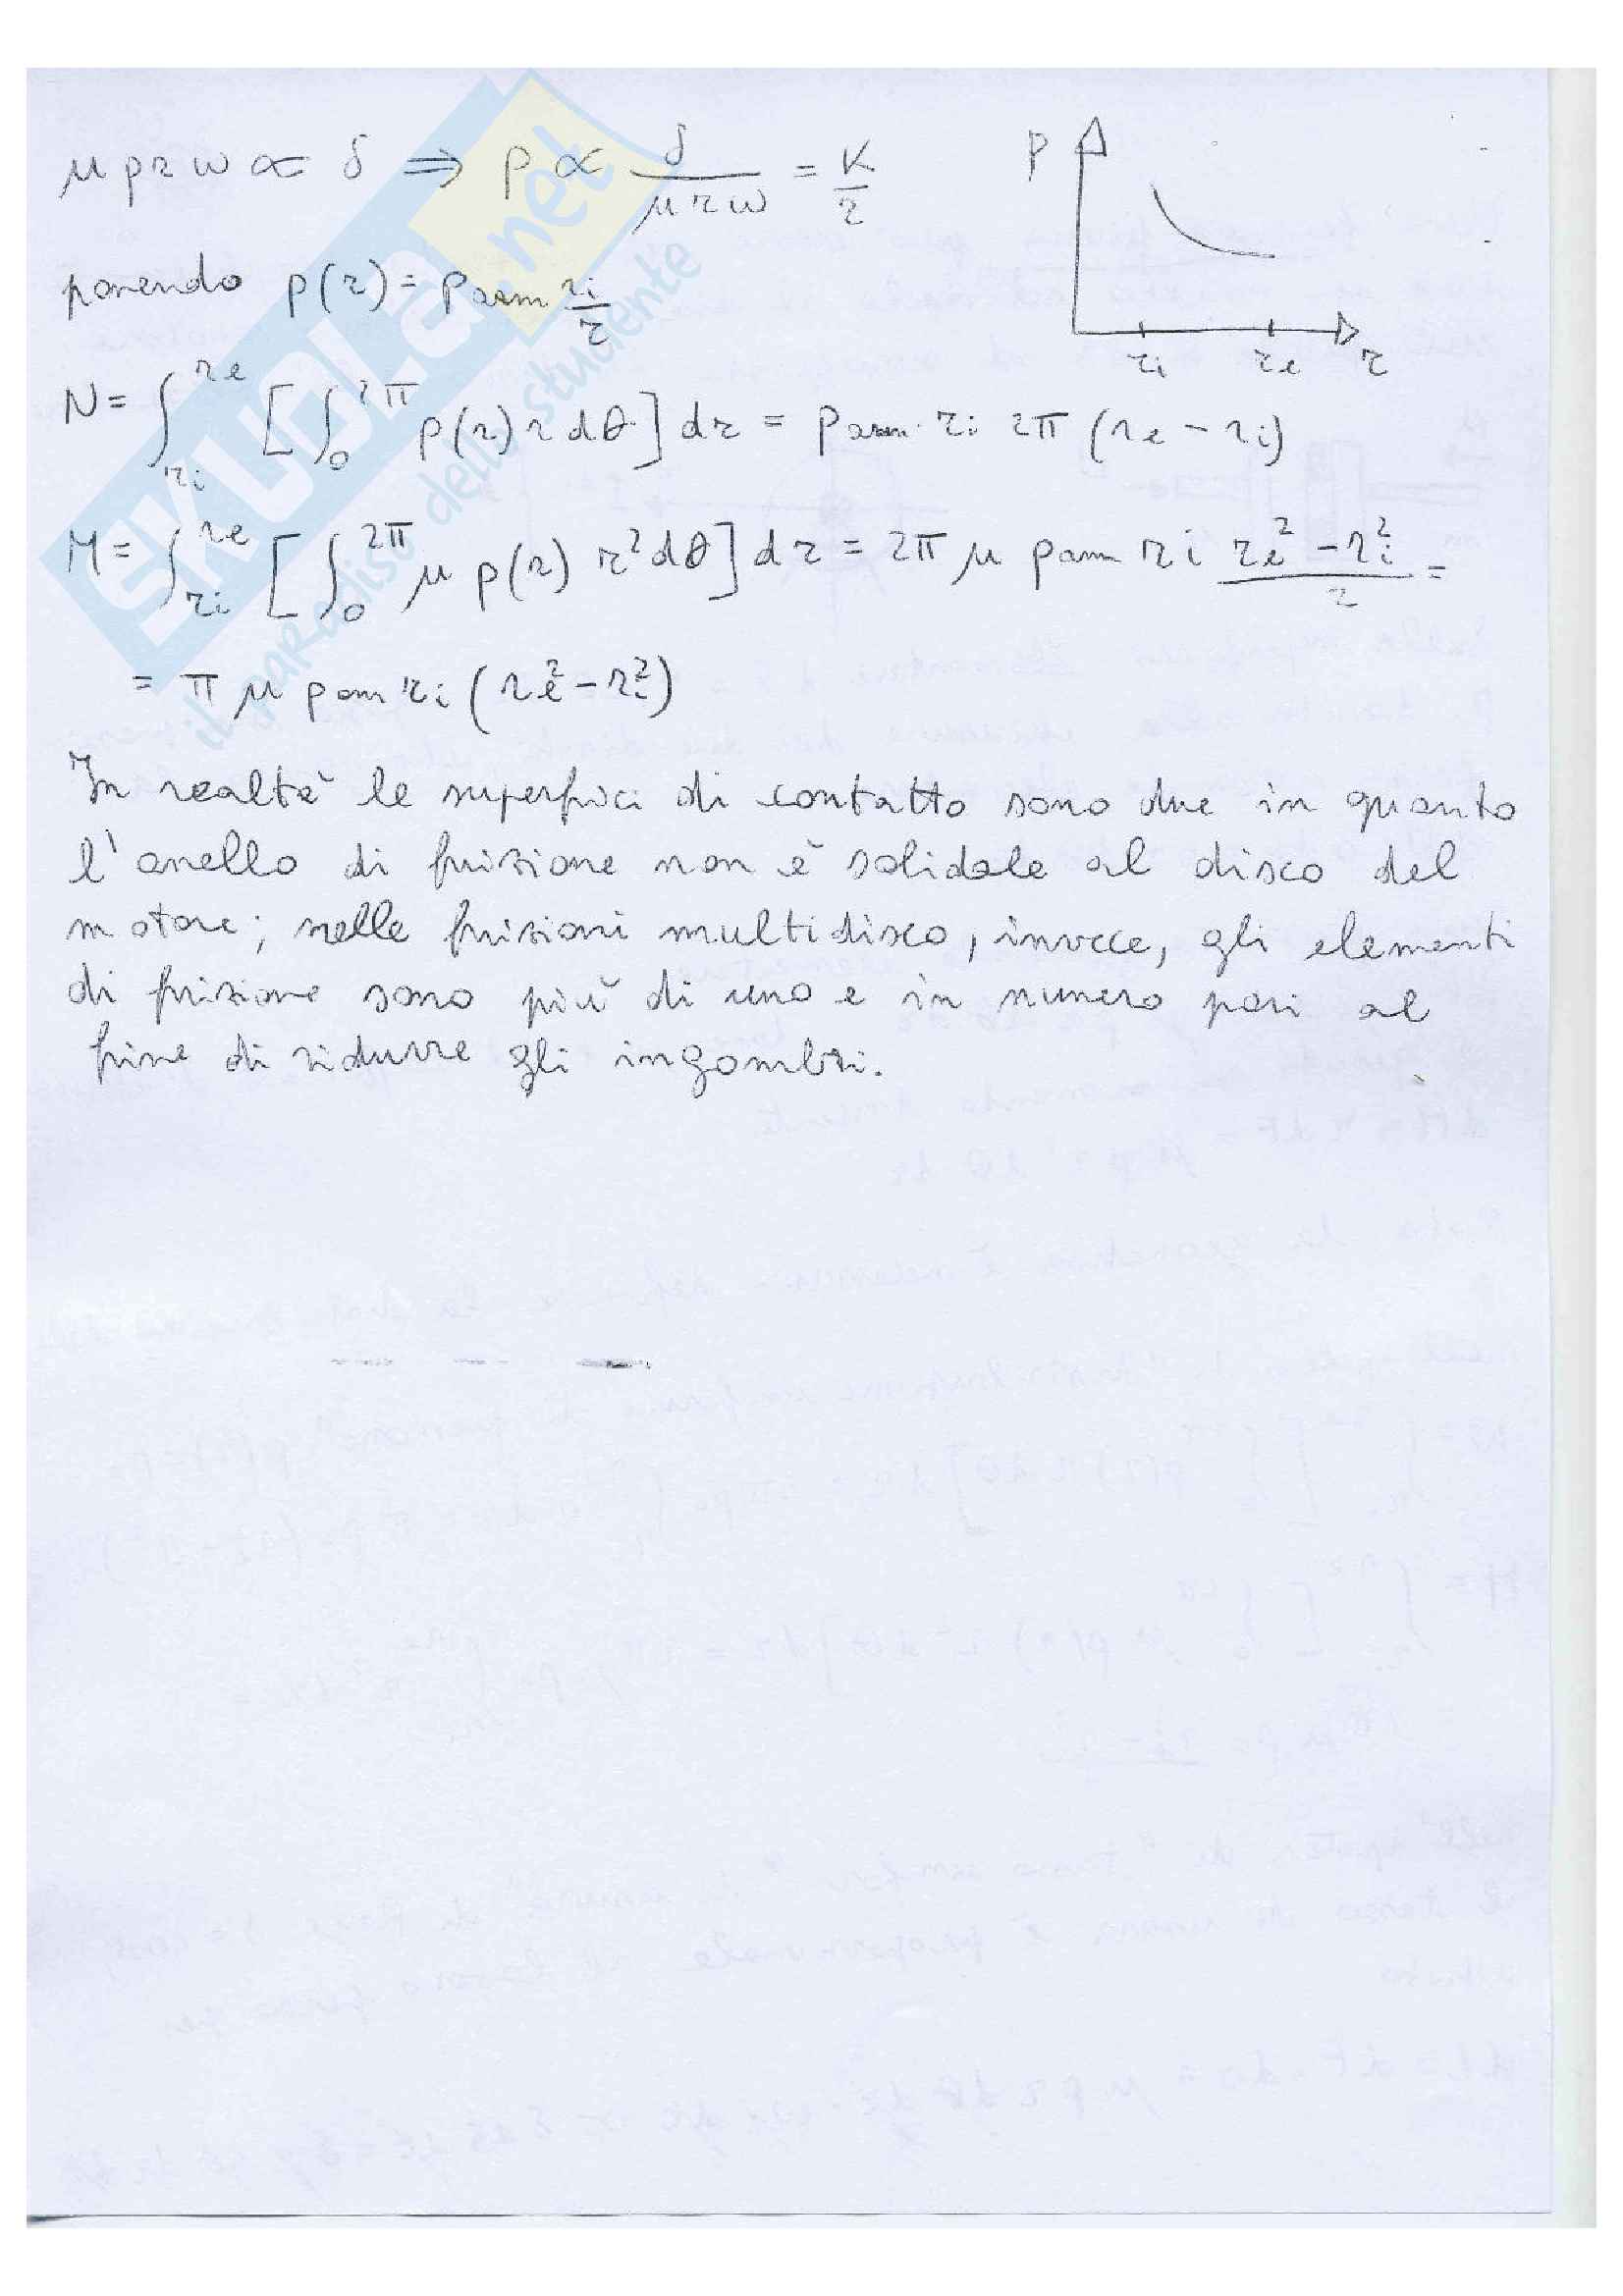 μ p r ω ∝ δ ⇒ p ∝ δ/(μ r ω) = K/r
p
r_i r_e r
ponendo p(r) = p_amm r_i/r
N = ∫_{r_i}^{r_e} [∫_0^{2π} p(r) r dθ] dr = p_amm r_i 2π (r_e - r_i)
M = ∫_{r_i}^{r_e} [∫_0^{2π} μ p(r) r² dθ] dr = 2π μ p_amm r_i (r_e² - r_i²)/2 =
= π μ p_amm r_i (r_e² - r_i²)
In realtà le superfici di contatto sono due in quanto
l'anello di frizione non è solidale al disco del
motore; nelle frizioni multidisco, invece, gli elementi
di frizione sono più di uno e in numero pari al
fine di ridurre gli ingombri.
SKUOLA.net
il paradiso dello studente